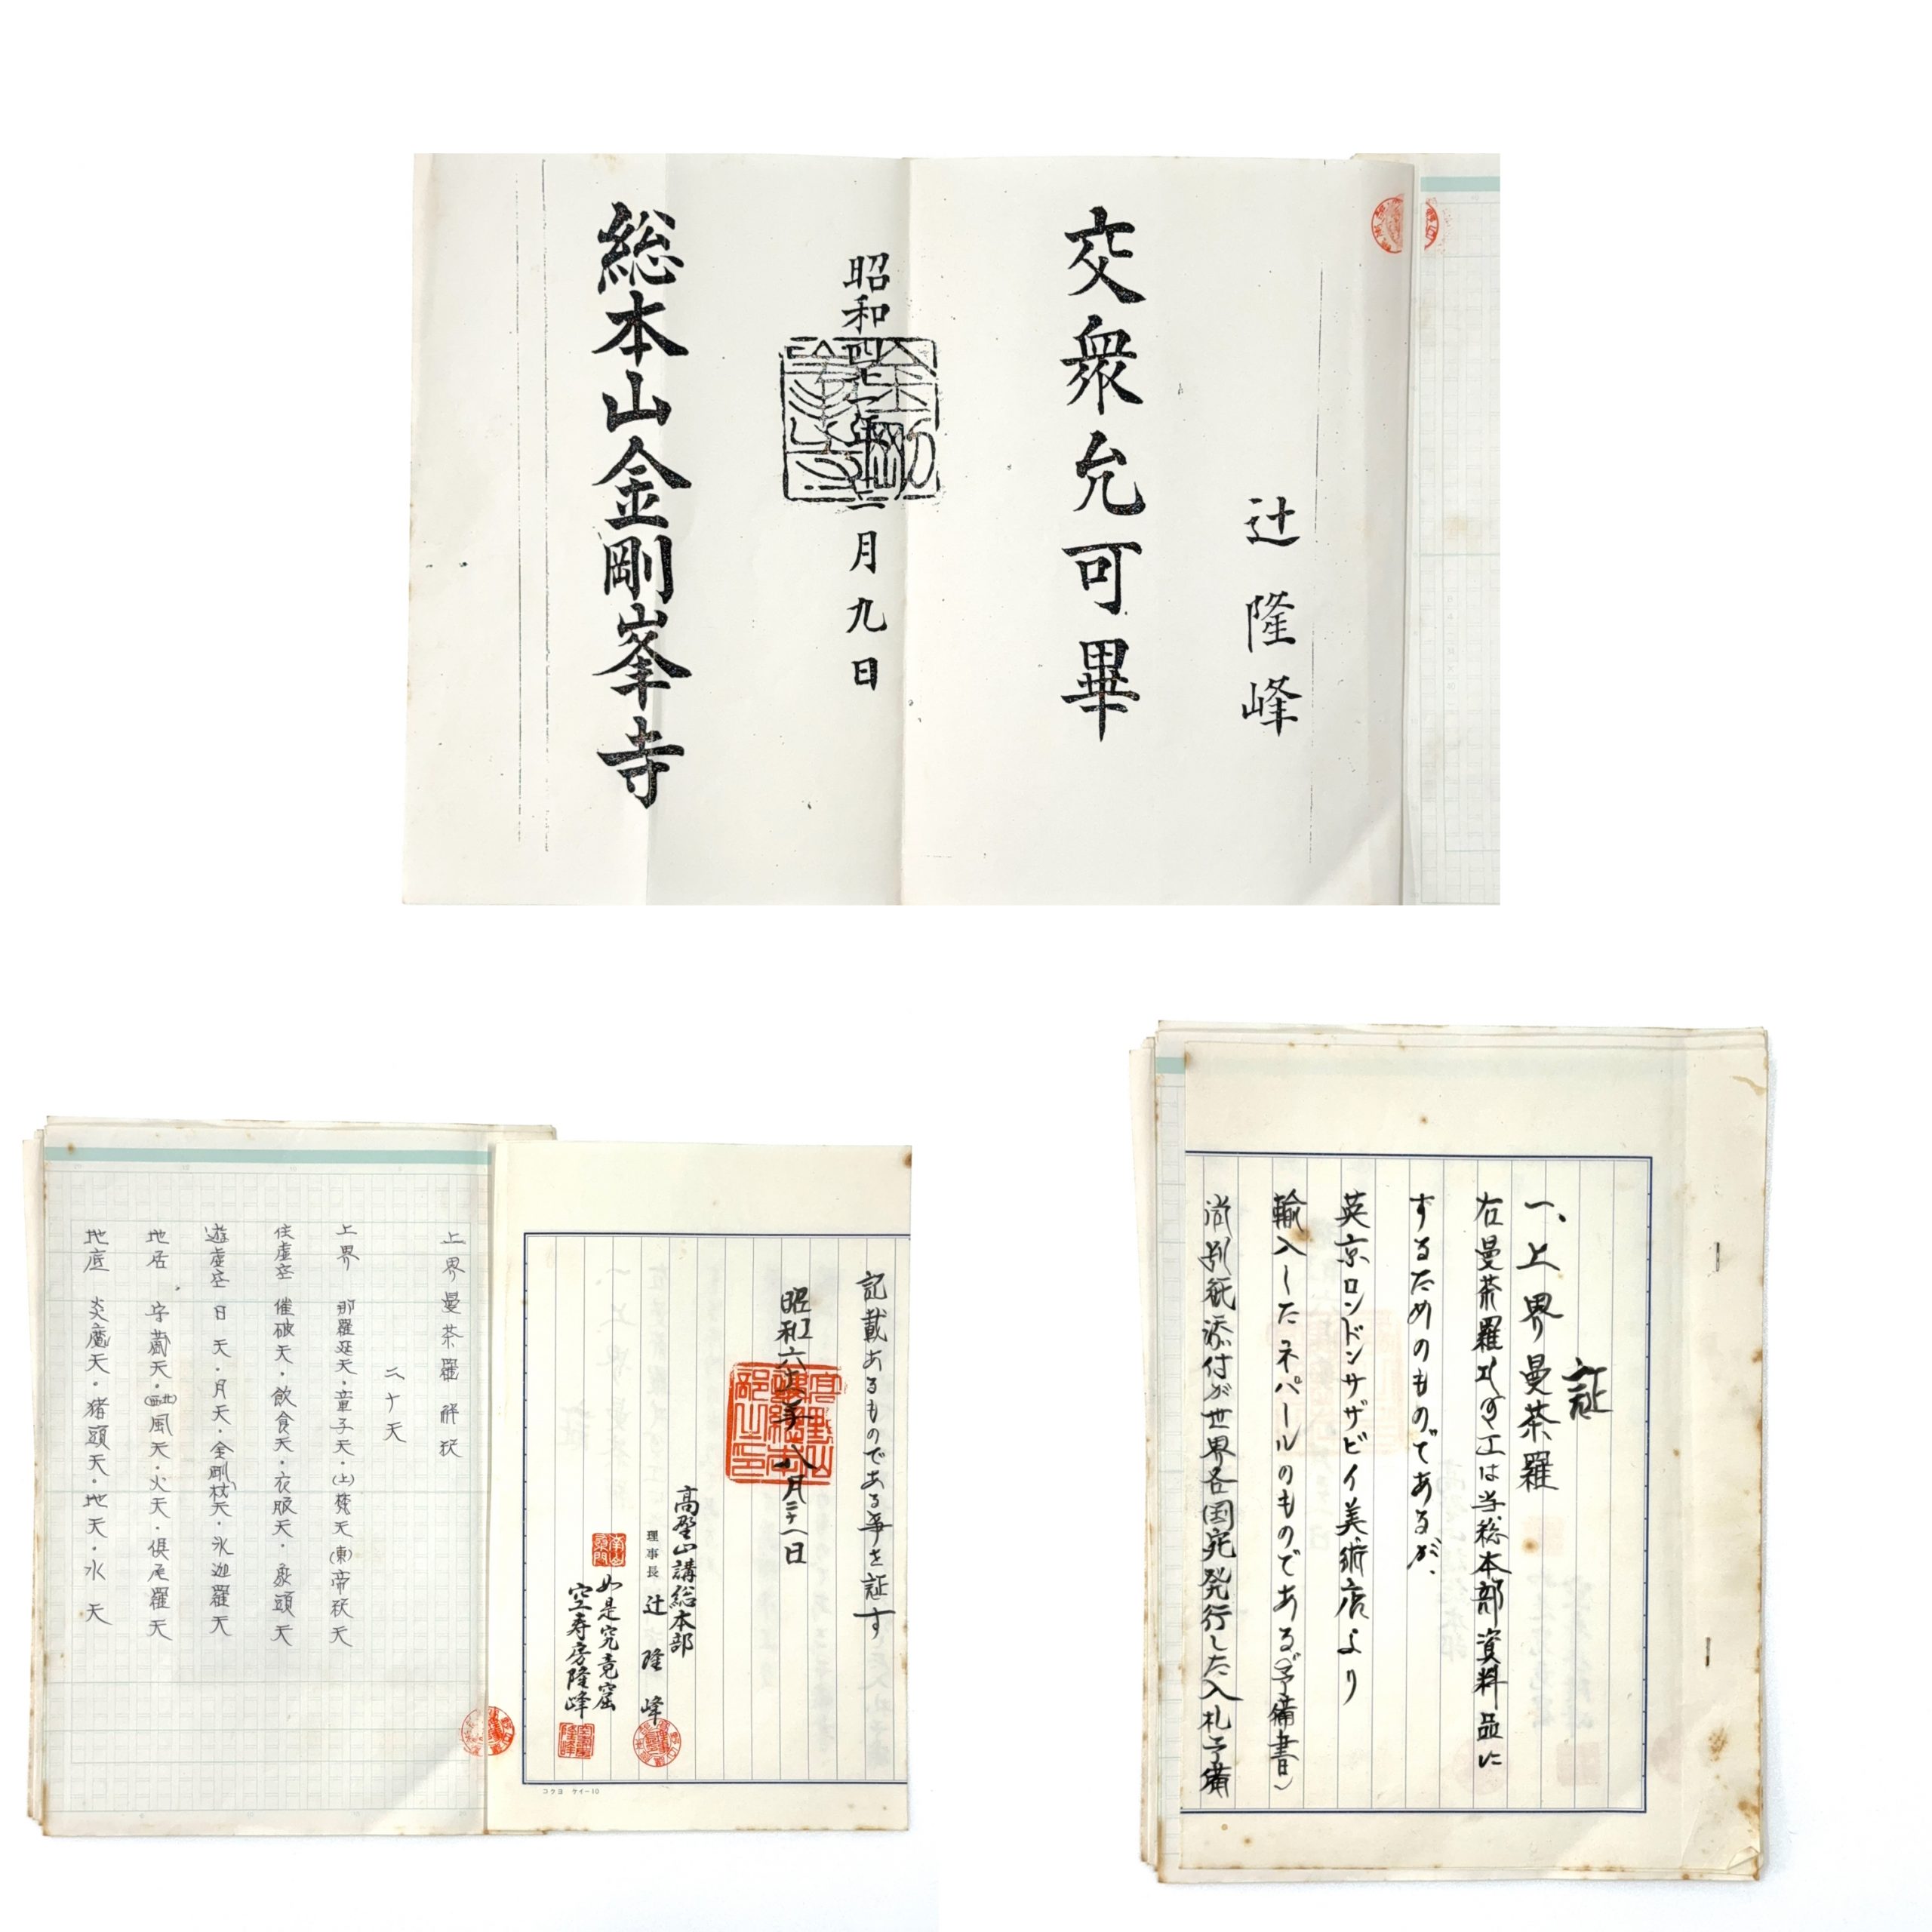 辻隆峰
交衆允可畢
昭和四十一年十二月九日
総本山金剛峯寺
証
一、上界曼茶羅
右曼茶羅は当総本部資料品に
するためのものであるが、
英京ロンドンサザビイ美術店より
輸入したネパールのものである(予備書)
尚別紙添付が世界各国宛発行した入札予備
記載あるものである事を証す
昭和六十年八月三十一日
高野山講総本部
理事長 辻隆峰
如是究竟窟
空寿房隆峰
コクヨ ケイー10
上界曼茶羅解釈
二十天
上界 那羅延天・童子天・(上)梵天(東)帝釈天
住虚空 催破天・飲食天・衣服天・象頭天
遊虚空 日天・月天・金剛杖天・氷迦羅天
地居 守蔵天・(西北)風天・火天・倶尾羅天
地底 炎魔天・猪頭天・地天・水天